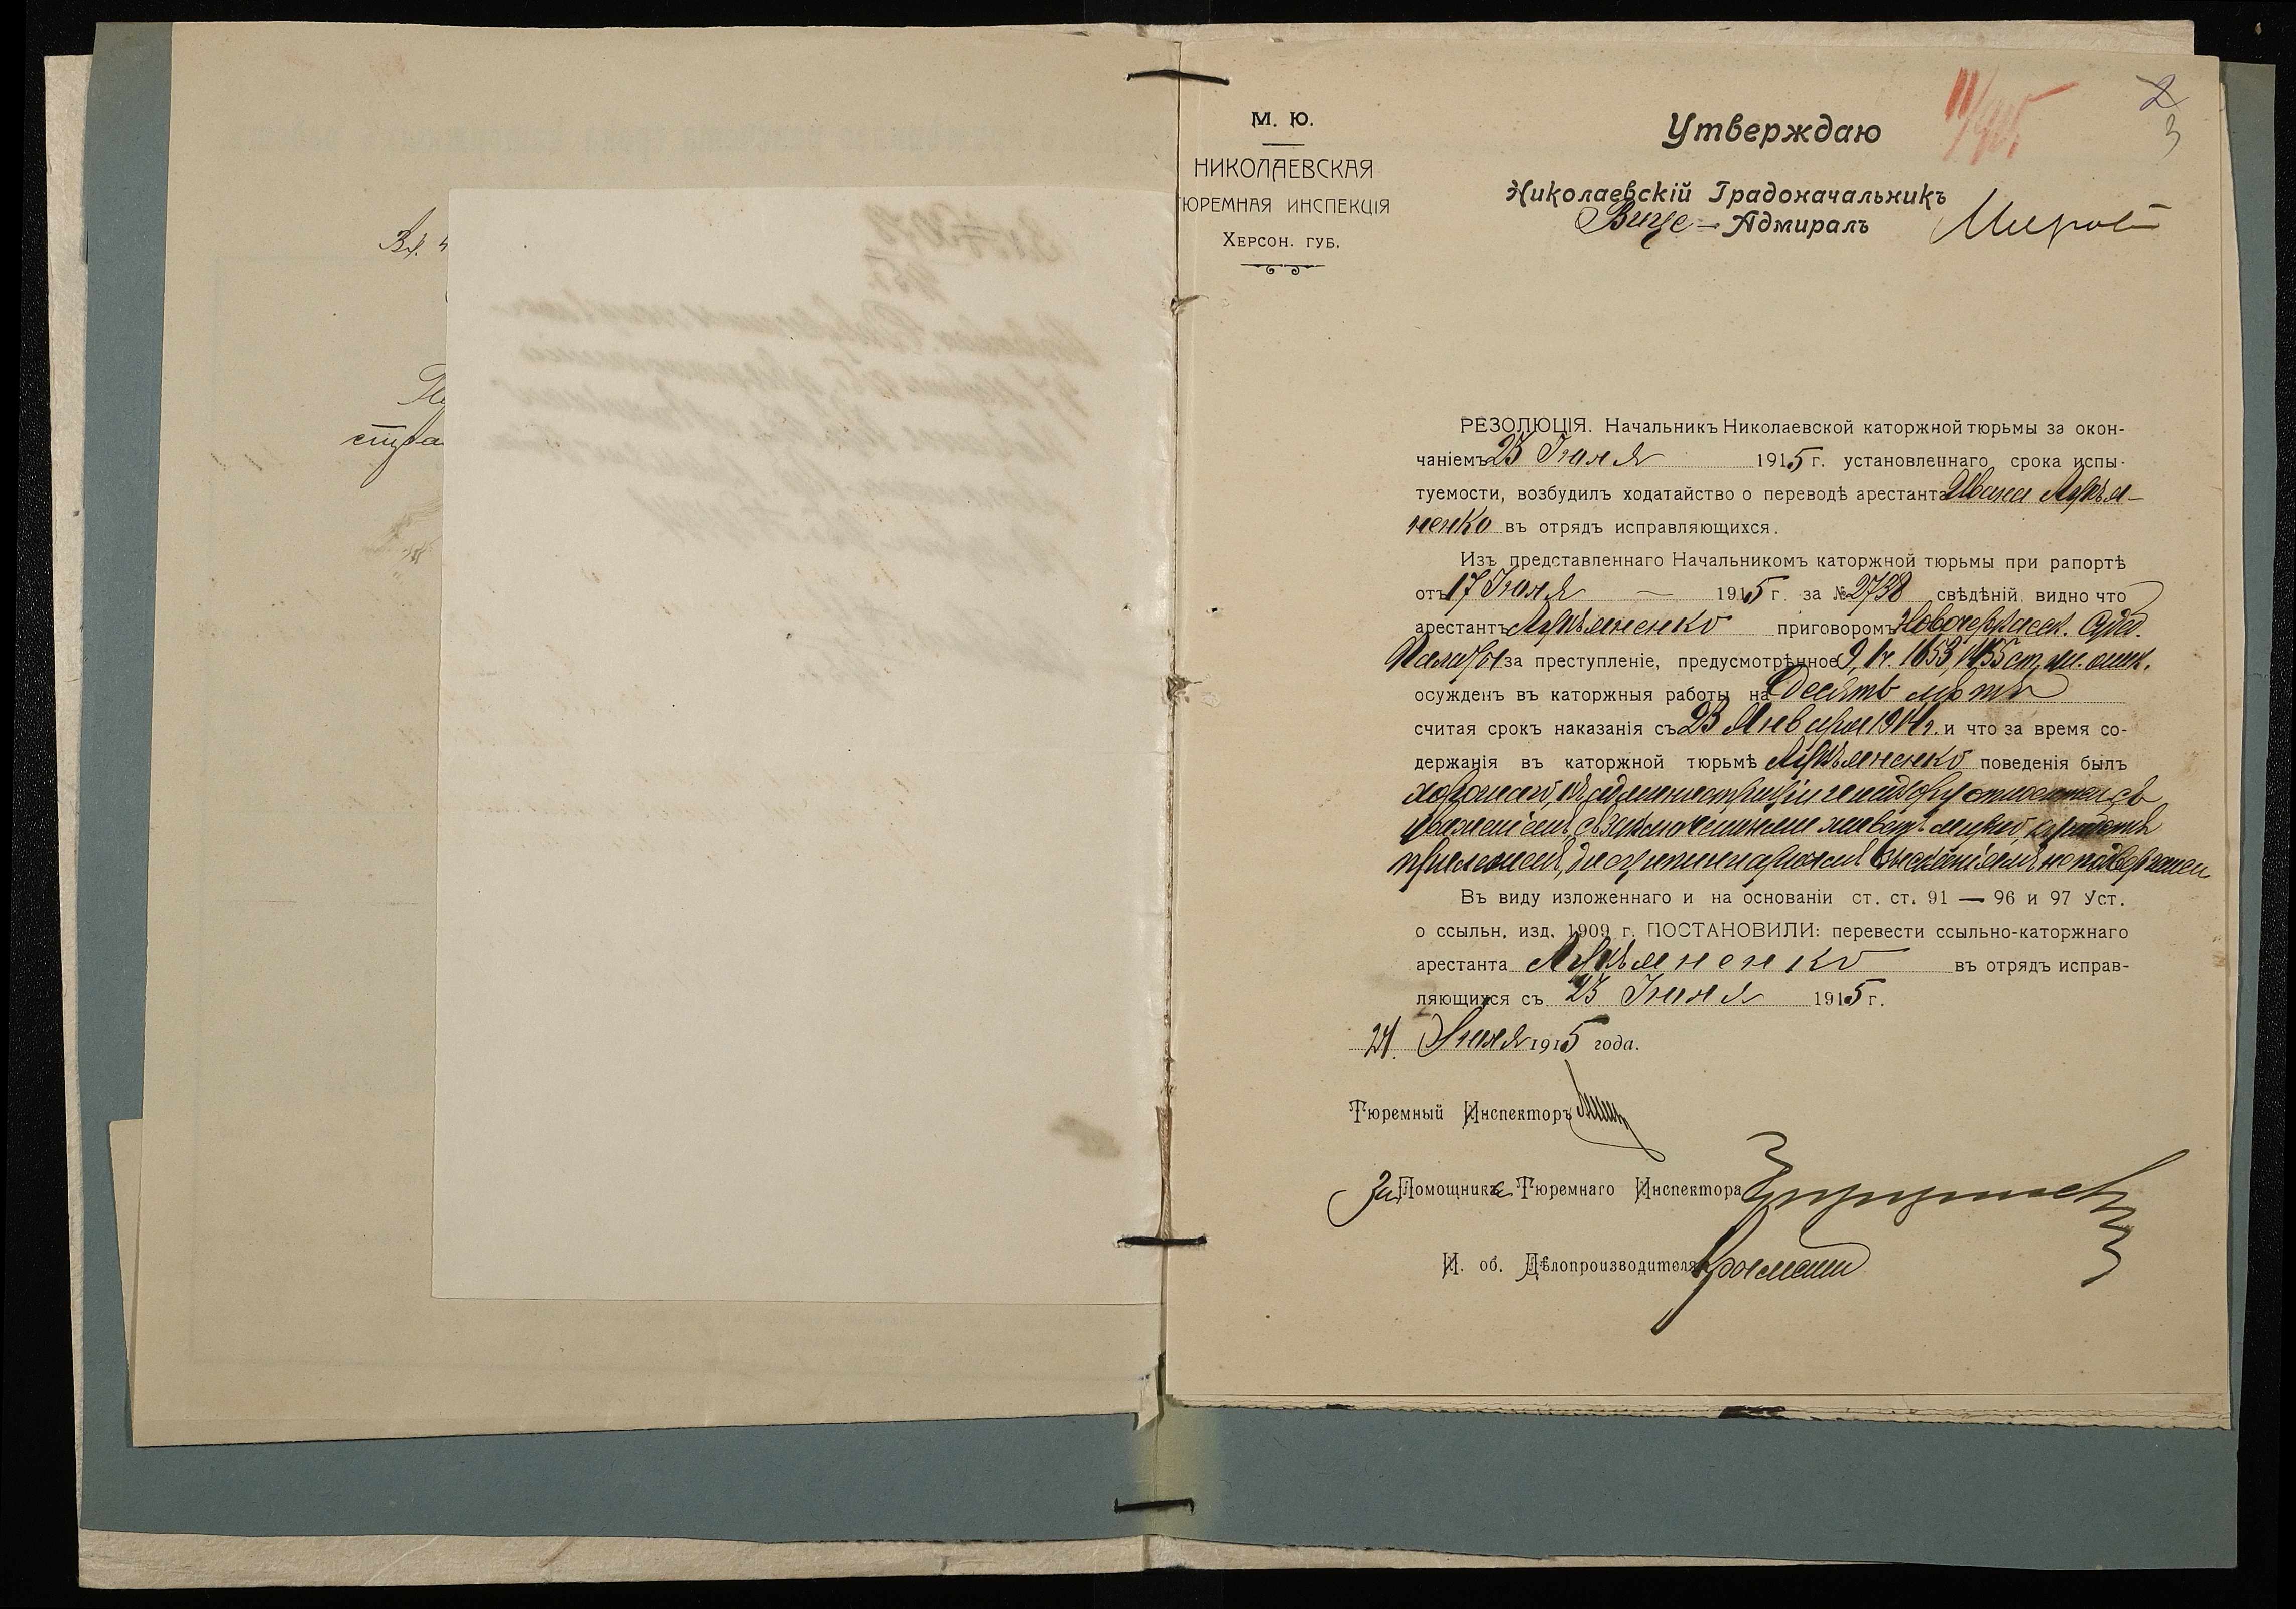 Вх.
стра
М. Ю.
НИКОЛАЕВСКАЯ
ТЮРЕМНАЯ ИНСПЕКЦІЯ
ХЕРСОН. ГУБ.
2
3
Утверждаю
Николаевскій Градоначальникъ
Вице-Адмиралъ
РЕЗОЛЮЦІЯ. Начальникъ Николаевской каторжной тюрьмы за окон-
чаніемъ 23 Іюля 1915 г. установленнаго срока испы-
туемости, возбудилъ ходатайство о переводѣ арестанта Ивана Лукья-
ненко въ отрядъ исправляющихся.
Изъ представленнаго Начальникомъ каторжной тюрьмы при рапортѣ
отъ 17 Іюля 1915 г. за № 2738 свѣдѣній, видно что
арестантъ Лукьяненко приговоромъ Новочеркасск. Суд.
Палаты за преступленіе, предусмотрѣнное 9, 1 ч. 1653, 1655 ст.
осужденъ въ каторжныя работы на Десять лѣтъ
считая срокъ наказанія съ 23 Января 1914 г. и что за время со-
держанія въ каторжной тюрьмѣ Лукьяненко поведенія былъ
хорошаго, къ администраціи и надзору относится съ
уваженіемъ, съ заключенными живетъ мирно, къ работѣ
прилеженъ, дисциплинарнымъ взысканіямъ не подвергался
Въ виду изложеннаго и на основаніи ст. ст. 91 — 96 и 97 Уст.
о ссыльн. изд. 1909 г. ПОСТАНОВИЛИ: перевести ссыльно-каторжнаго
арестанта Лукьяненко въ отрядъ исправ-
ляющихся съ 23 Іюля 1915 г.
24 Іюля 1915 года.
Тюремный Инспекторъ
За Помощника Тюремнаго Инспектора
И. об. Дѣлопроизводителя